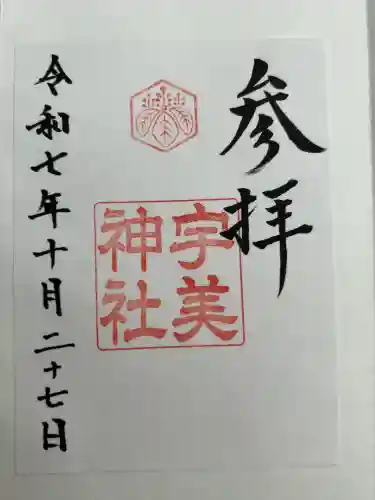 参拝
宇美
神社
令和七年十月二十七日